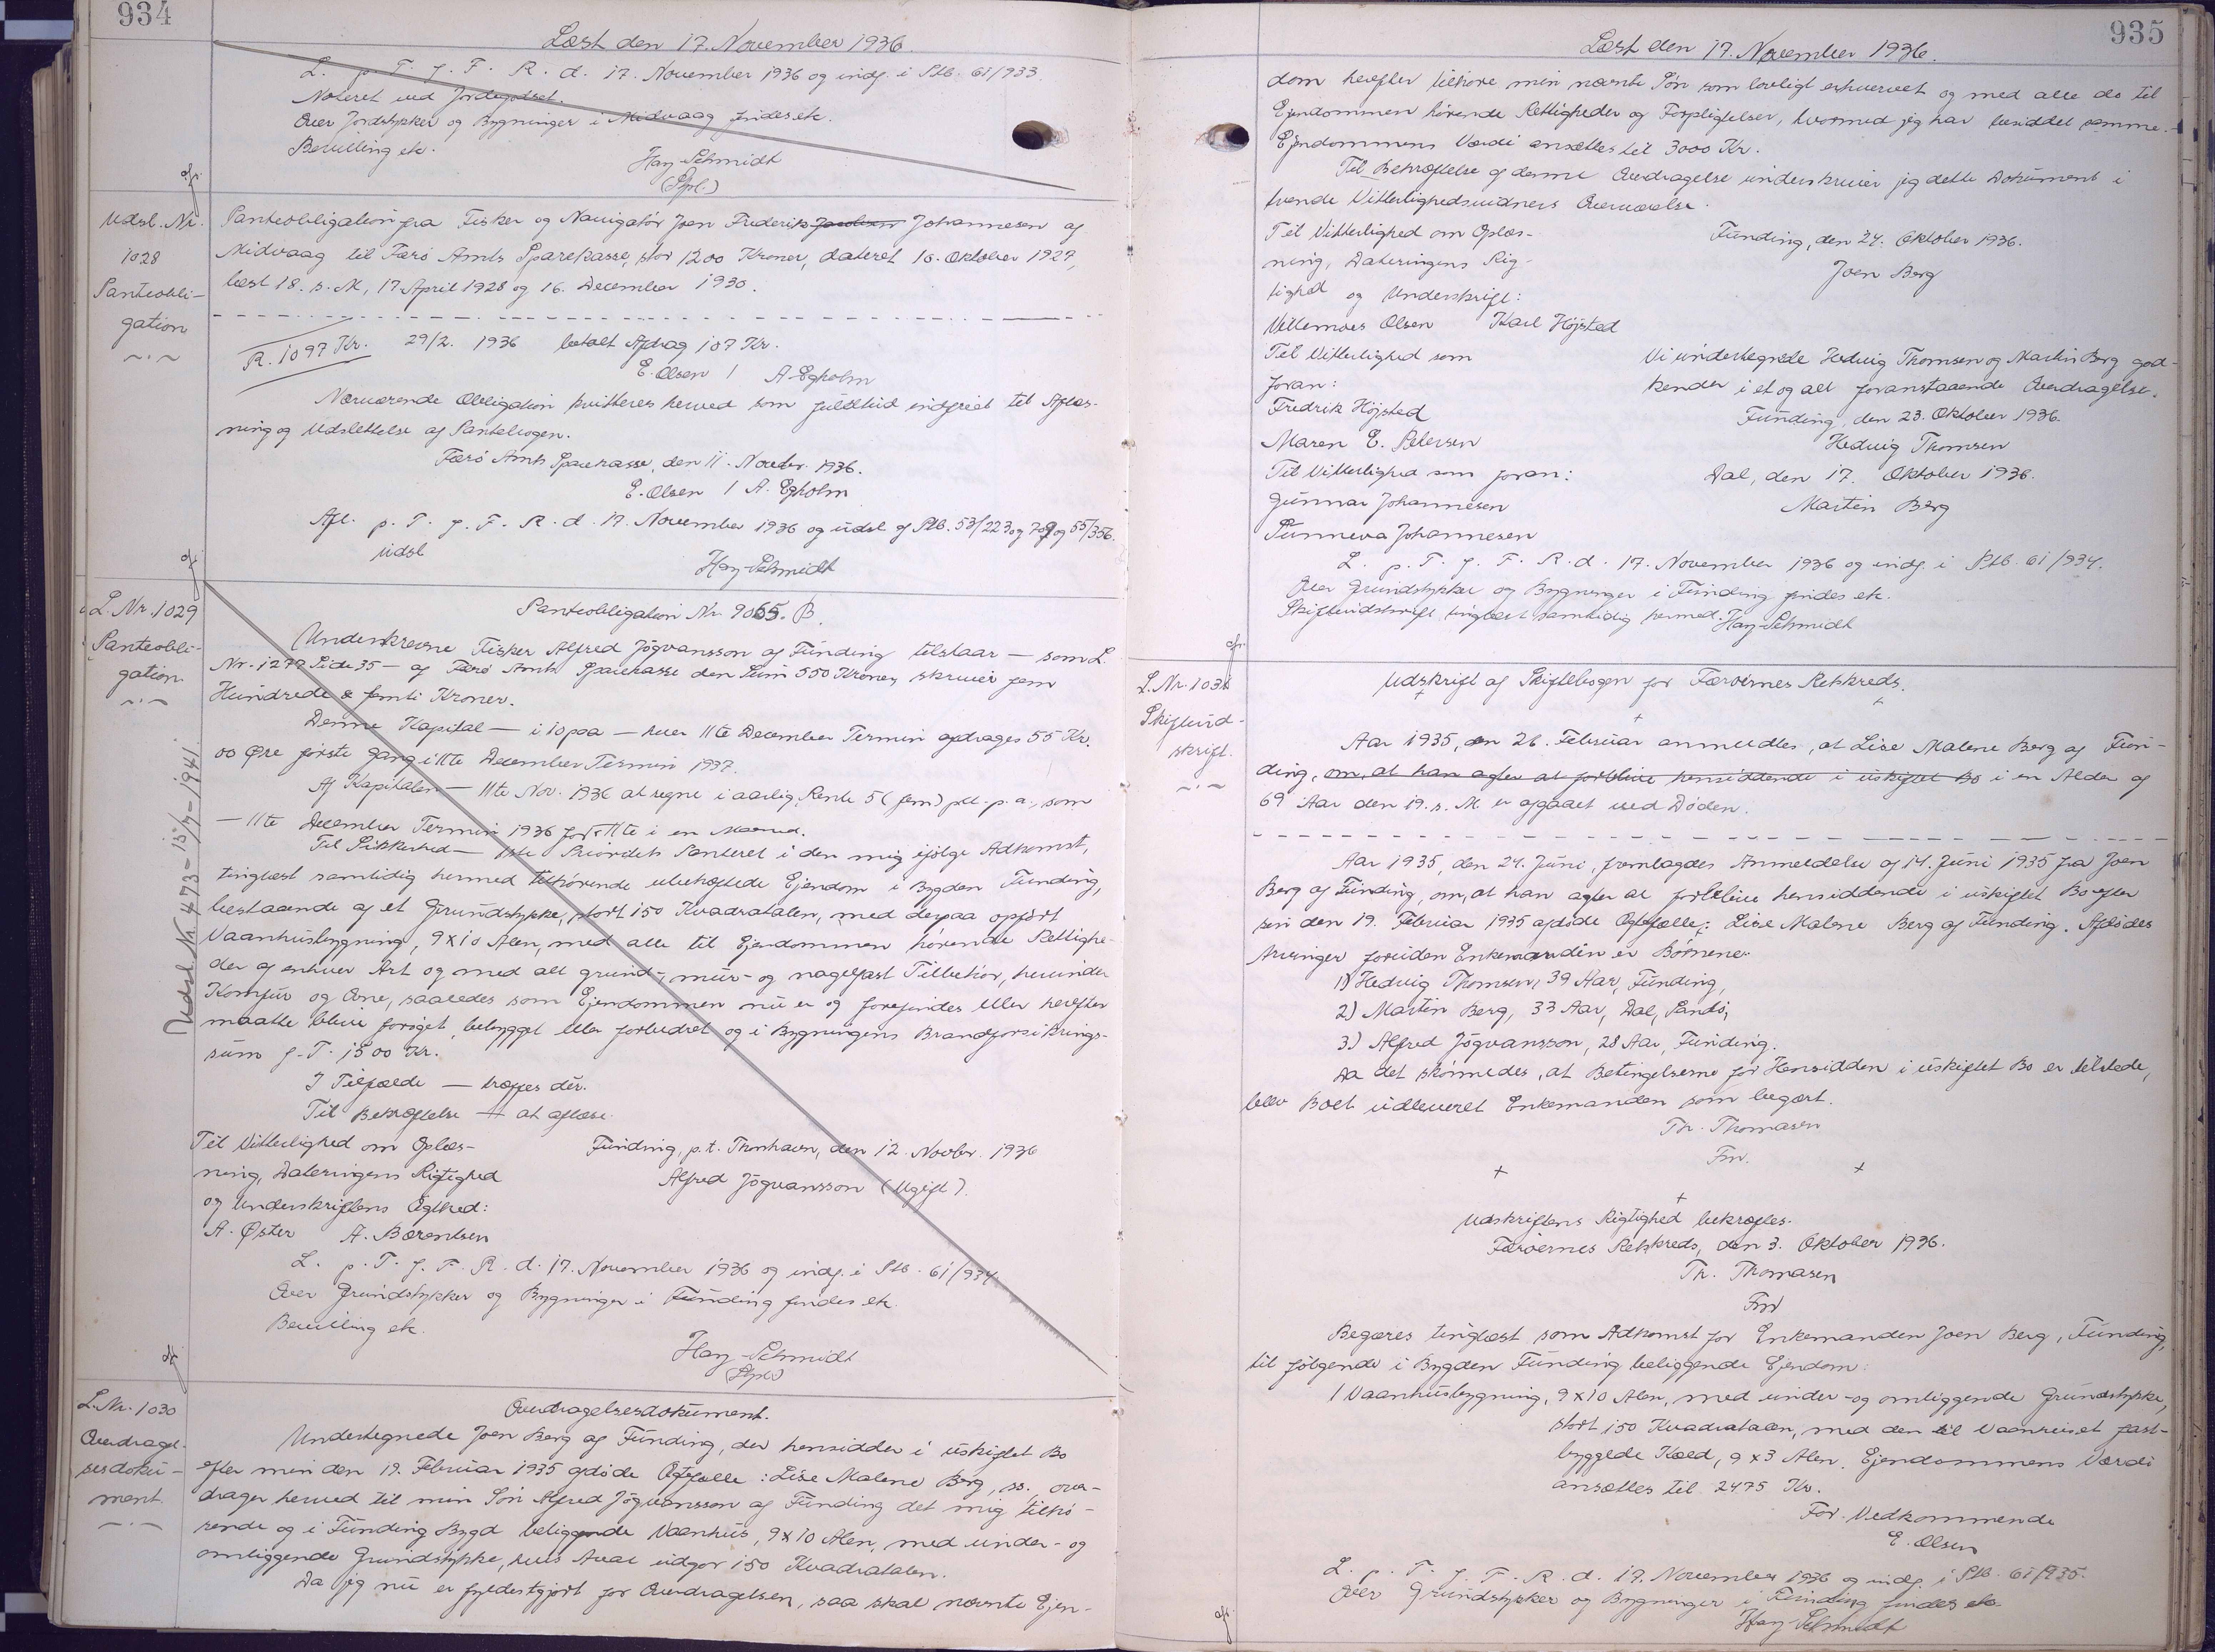 934
Læst den 17. November 1936.
L. p. T. f. F. R. d. 17. November 1936 og indf. i Ptb. 61/933.
Noteret ved Jordegodset.
Over Jordstykker og Bygninger i Midvaag findes ek.
Bevilling ek.
Hay-Schmidt
(Spl.)
Udsl. Nr.
1028
Panteobli-
gation
Panteobligation fra Fisker og Navigatør Joen Frederik Jacobsen Johannesen af
Midvaag til Færø Amts Sparekasse, stor 1200 Kroner, dateret 10. Oktober 1927,
læst 18. s. M., 17 April 1928 og 16. December 1930.
R. 1097 Kr. 29/2. 1936 betalt Afdrag 107 Kr.
E. Olsen / A. Egholm
Nærværende Obligation kvitteres herved som fuldtud indfriet til Aflæs-
ning og Udslettelse af Pantebogen.
Færø Amts Sparekasse, den 11. Novbr. 1936.
E. Olsen / A. Egholm
Afl. p. T. f. F. R. d. 17. November 1936 og udsl. af Ptb. 53/223 og 709 og 55/356.
udsl
Hay-Schmidt
L. Nr. 1029
Panteobli-
gation
Udsl. Nr. 473 - 15/7 - 1941.
Panteobligation Nr. 9065. B.
Underskrevne Fisker Alfred Jógvansson af Funding tilstaar — som L.
Nr. 1277 Side 35 — af Færø Amts Sparekasse den Sum 550 Kroner, skriver fem
Hundrede & femti Kroner.
Denne Kapital — i 10 paa — hver 11te December Termin afdrages 55 Kr.
00 Øre første Gang i 11te December Termin 1937.
Af Kapitalen — 11te Nov. 1936 at regne i aarlig Rente 5 (fem) pct. p. a., som
— 11te December Termin 1936 for 11te i en Maaned.
Til Sikkerhed — 1ste Prioritets Panteret i den mig ifølge Adkomst,
tinglæst samtidig hermed tilhørende ubehæftede Ejendom i Bygden Funding,
bestaaende af et Grundstykke, stort 150 Kvadratalen, med derpaa opført
Vaanhusbygning, 9 x 10 Alen, med alle til Ejendommen hørende Rettighe-
der af enhver Art og med alt grund-, mur- og nagelfast Tilbehør, herunder
Komfur og Ovne, saaledes som Ejendommen nu er og forefindes eller herefter
maatte blive forøget, bebygget eller forbedret og i Bygningens Brandforsikrings-
sum f. T. 1500 Kr.
I Tilfælde — træffes dér.
Til Bekræftelse — at aflæse.
Til Vitterlighed om Oplæs-
ning, Dateringens Rigtighed
og Underskriftens Ægthed:
A. Øster A. Bærentsen
Funding, p.t. Thorshavn, den 12. Novbr. 1936
Alfred Jógvansson (Ugift).
L. p. T. f. F. R. d. 17. November 1936 og indf. i Ptb. 61/934.
Over Grundstykker og Bygninger i Funding findes ek.
Bevilling ek.
Hay-Schmidt
(Spl.)
L. Nr. 1030
Overdragel-
sesdoku-
ment.
Overdragelsesdokument.
Undertegnede Joen Berg af Funding, der hensidder i uskiftet Bo
efter min den 19. Februar 1935 afdøde Ægtefælle: Lise Malene Berg, ss., over-
drager herved til min Søn Alfred Jógvansson af Funding det mig tilhø-
rende og i Funding Bygd beliggende Vaanhus, 9 x 10 Alen, med under- og
omliggende Grundstykke, hvis Areal udgør 150 Kvadratalen.
Da jeg nu er fyldestgjort for Overdragelsen, saa skal nævnte Ejen-
935
Læst den 17. November 1936.
dom herefter tilhøre min nævnte Søn som lovligt erhvervet og med alle de til
Ejendommen hørende Rettigheder og Forpligtelser, hvormed jeg har besiddet samme.
Ejendommens Værdi ansættes til 3000 Kr.
Til Bekræftelse af denne Overdragelse underskriver jeg dette Dokument i
tvende Vitterlighedsvidners Overværelse.
Til Vitterlighed om Oplæs-
ning, Dateringens Rig-
tighed og Underskrift:
Villemoes Olsen Karl Højsted
Funding, den 24. Oktober 1936.
Joen Berg
Til Vitterlighed som
foran:
Fredrik Højsted
Maren E. Petersen
Vi undertegnede Hedvig Thomsen og Martin Berg god-
kender i et og alt foranstaaende Overdragelse.
Funding, den 23. Oktober 1936.
Hedvig Thomsen
Til Vitterlighed som foran:
Gunnar Johannesen
Sunneva Johannesen
Dal, den 17. Oktober 1936.
Martin Berg
L. p. T. f. F. R. d. 17. November 1936 og indf. i Ptb. 61/934.
Over Grundstykker og Bygninger i Funding findes ek.
Skifteudskrift tinglæst samtidig hermed. Hay-Schmidt
L. Nr. 1031
Skifteud-
skrift.
Udskrift af Skiftebogen for Færøernes Retskreds.
Aar 1935, den 26. Februar anmeldtes, at Lise Malene Berg af Fun-
ding, om, at han agter at forblive hensiddende i uskiftet Bo i en Alder af
69 Aar den 19. s. M. er afgaaet ved Døden.
Aar 1935, den 24. Juni, fremlagdes Anmeldelse af 14. Juni 1935 fra Joen
Berg af Funding, om, at han agter at forblive hensiddende i uskiftet Bo efter
sin den 19. Februar 1935 afdøde Ægtefælle: Lise Malene Berg af Funding. Afdødes
Arvinger foruden Enkemanden er Børnene:
1) Hedvig Thomsen, 39 Aar, Funding,
2) Martin Berg, 33 Aar, Dal, Sandø,
3) Alfred Jógvansson, 28 Aar, Funding.
Da det skønnedes, at Betingelserne for Hensidden i uskiftet Bo er tilstede,
blev Boet udleveret Enkemanden som begært.
Th. Thomasen
Fm.
Udskriftens Rigtighed bekræftes.
Færøernes Retskreds, den 3. Oktober 1936.
Th. Thomasen
Fm
Begæres tinglæst som Adkomst for Enkemanden Joen Berg, Funding,
til følgende i Bygden Funding beliggende Ejendom:
1 Vaanhusbygning, 9 x 10 Alen, med under- og omliggende Grundstykke,
stort 150 Kvadratalen, med den til Vaanhuset fast-
byggede Kæld, 9 x 3 Alen. Ejendommens Værdi
ansættes til 2475 Kr.
For Vedkommende
E. Olsen
L. p. T. f. F. R. d. 17. November 1936 og indf. i Ptb. 61/935.
Over Grundstykker og Bygninger i Funding findes ek.
Hay-Schmidt